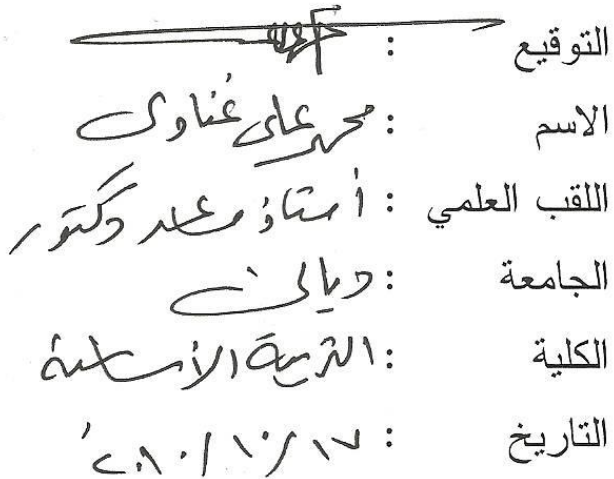 التوقيع :
الاسم : محمد علي غناوي
اللقب العلمي : أستاذ مساعد دكتور
الجامعة : ديالى
الكلية : التربية الأساسية
التاريخ : ٢٠١٠/١٠/١٧